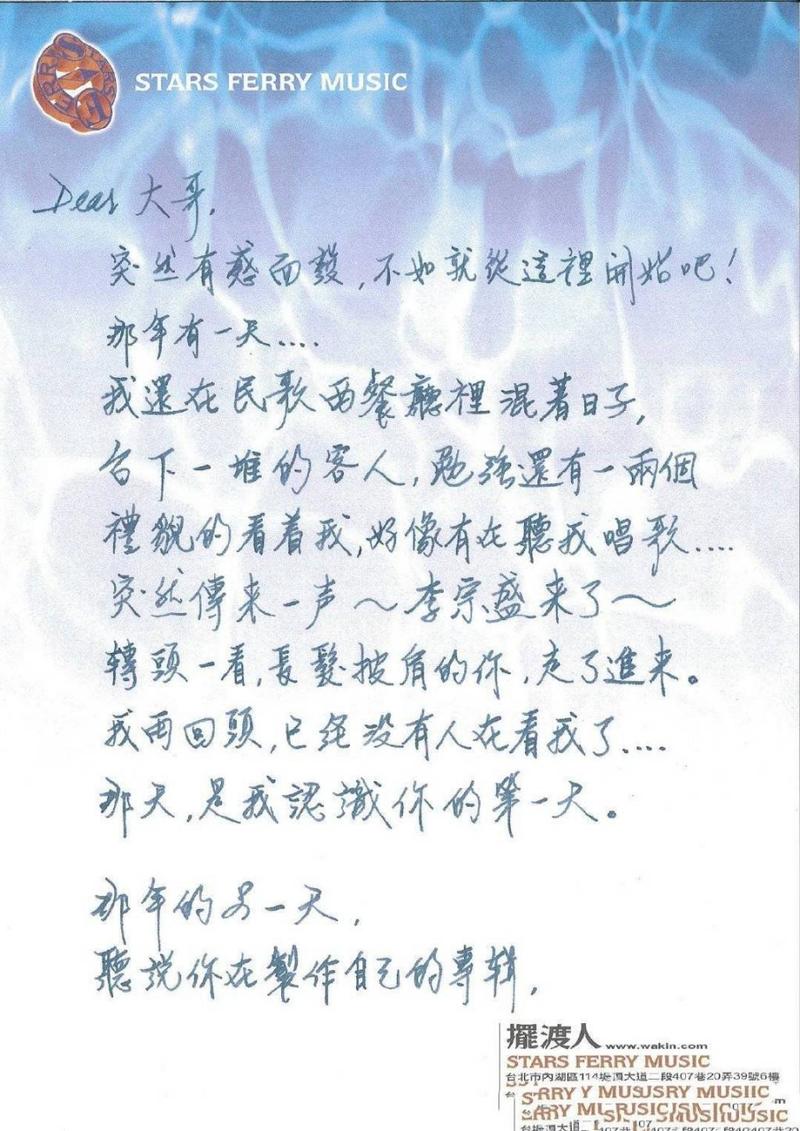 STARS FERRY MUSIC
Dear 大哥,
突然有感而發,不如就從這裡開始吧!
那年有一天....
我還在民歌西餐廳裡混着日子,
台下一堆的客人,勉強還有一兩個
禮貌的看着我,好像有在聽我唱歌....
突然傳来一声～李宗盛来了～
轉頭一看,長髮披肩的你,走了進来。
我再回頭,已经没有人在看我了....
那天,是我認識你的第一天。
那年的另一天,
聽說你在製作自己的專輯,
擺渡人 www.wakin.com
STARS FERRY MUSIC
台北市內湖區114堤頂大道二段407巷20弄39號6樓